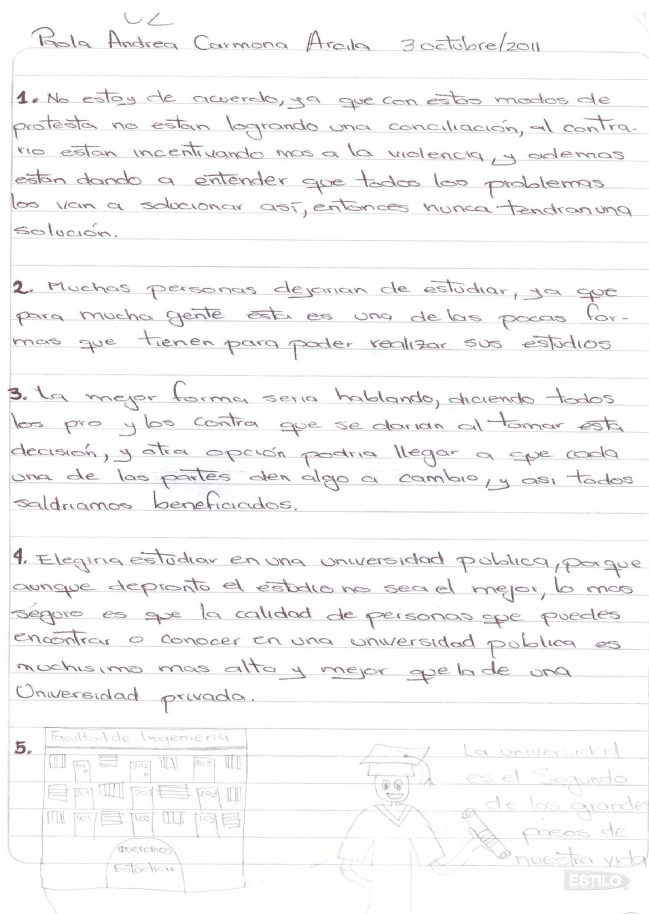 UZ
Paola Andrea Carmona Arcila 3 octubre/2011
1. No estoy de acuerdo, ya que con estos modos de
protesta no estan logrando una conciliación, al contra-
rio estan incentivando mas a la violencia, y ademas
estan dando a entender que todos los problemas
los van a solucionar así, entonces nunca tendran una
solución.
2. Muchas personas dejarian de estudiar, ya que
para mucha gente esta es una de las pocas for-
mas que tienen para poder realizar sus estudios
3. La mejor forma seria hablando, diciendo todos
los pro y los contra que se darian al tomar esta
decisión, y otra opción podria llegar a que cada
una de las partes den algo a cambio, y asi todos
saldriamos beneficiados.
4. Elegiria estudiar en una universidad publica, porque
aunque depronto el estudio no sea el mejor, lo mas
seguro es que la calidad de personas que puedes
encontrar o conocer en una universidad publica es
muchisimo mas alta y mejor que la de una
Universidad privada.
5.
Facultad de Ingenieria
Queremos
Estudiar
La universidad
es el Segundo
de los grandes
pasos de
nuestra vida
ESTILO